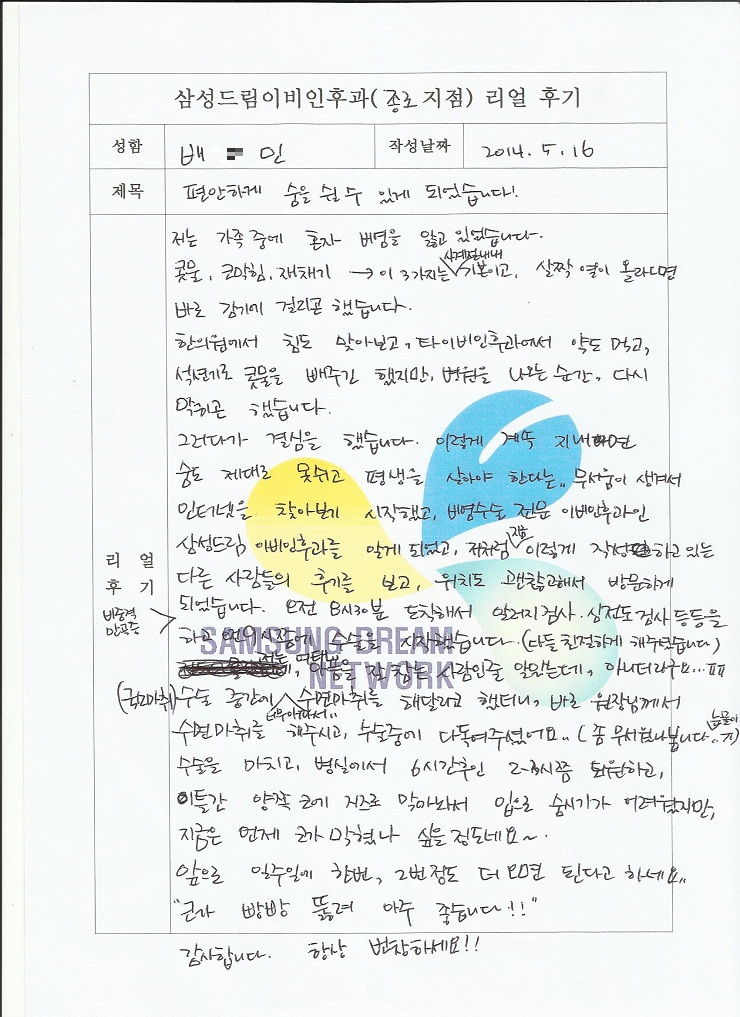 삼성드림이비인후과(종로지점) 리얼 후기
성함 배 민 작성날짜 2014. 5. 16
제목 편안하게 숨을 쉴 수 있게 되었습니다!
저는 가족중에 혼자 비염을 앓고 있었습니다.
콧물, 코막힘, 재채기 → 이 3가지는 사계절내내 기본이고, 살짝 열이 올라오면
바로 감기에 걸리곤 했습니다.
한의원에서 침도 맞아보고, 타이비인후과에서 약도 먹고,
석션기로 콧물을 빼주긴 했지만, 병원을 나오는 순간, 다시
막히곤 했습니다.
그러다가 결심을 했습니다. 이렇게 계속 지내면
숨도 제대로 못쉬고 평생을 살아야 한다는.. 무서움이 생겨서
인터넷을 찾아보기 시작했고, 비염수술 전문 이비인후과인
삼성드림 이비인후과를 알게 되었고, 저처럼 지금 이렇게 작성하고 있는
다른 사람들의 후기를 보고, 위치도 괜찮고해서 방문하게
되었습니다. 오전 8시30분 도착해서 알러지검사. 심전도검사 등등을
하고 9시쯤에 수술을 시작했습니다. (다들 친절하게 해주셨습니다)
저는 여태껏, 아픔을 잘 참는 사람인줄 알았는데, 아니더라구요... ㅠㅠ
(국소마취) 수술 중간에 너무아파서.. 수면마취를 해달라고 했더니, 바로 원장님께서
수면마취를 해주시고, 수술중에 다독여주셨어요.. (좀 무서웠나봅니다.. 눈물이 ㅠ)
수술을 마치고, 병실에서 6시간후인 2-3시쯤 퇴원하고,
이틀간 양쪽 코에 거즈로 막아놔서 입으로 숨쉬기가 어려웠지만,
지금은 언제 코가 막혔나 싶을 정도네요~
앞으로 일주일에 한번, 2번정도 더 오면 된다고 하세요..
"코가 빵빵 뚫려 아주 좋습니다!!"
감사합니다. 항상 번창하세요!!
리얼
후기
비중격
만곡증
SAMSUNG DREAM
NETWORK